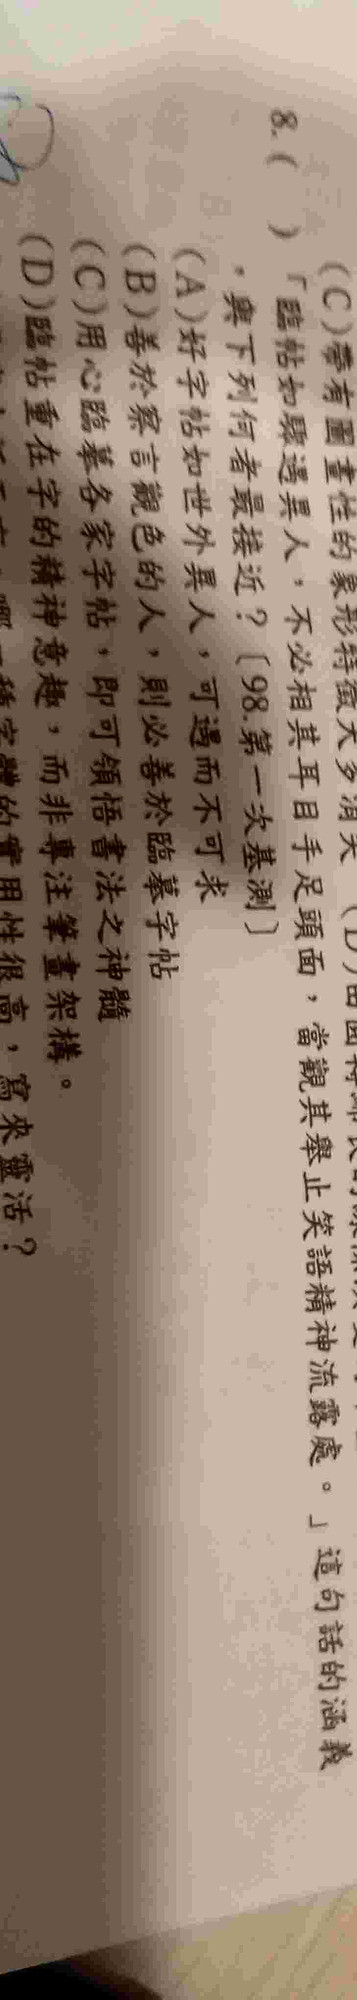 (C)帶有圖畫性的象形特徵大多消失 (D)由
8.(　)「臨帖如驟遇異人，不必相其耳目手足頭面，當觀其舉止笑語精神流露處。」這句話的涵義
，與下列何者最接近？〔98.第一次基測〕
(A)好字帖如世外異人，可遇而不可求
(B)善於察言觀色的人，則必善於臨摹字帖
(C)用心臨摹各家字帖，即可領悟書法之神髓
(D)臨帖重在字的精神意趣，而非專注筆畫架構。
種字體的實用性很高，寫來靈活？